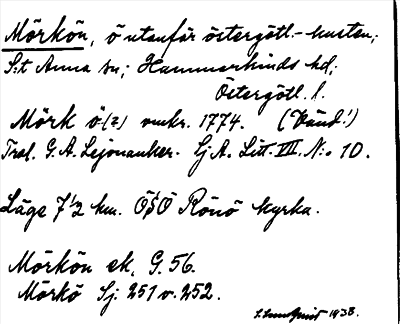 Mörkön, ö utanför östergötl.-kusten;
S:t Anna sn; Hammarkinds hd;
Östergötl. l.
Mörk ö(z) omkr. 1774. (Vänd!)
Trol. G. A. Lejonanker. Lj. A. Litt. VII. N:o 10.
Läge 7 1/2 km. ÖSÖ Rönö kyrka.
Mörkön ek. G. 56.
Mörkö Sj: 251 v. 252.
1938.